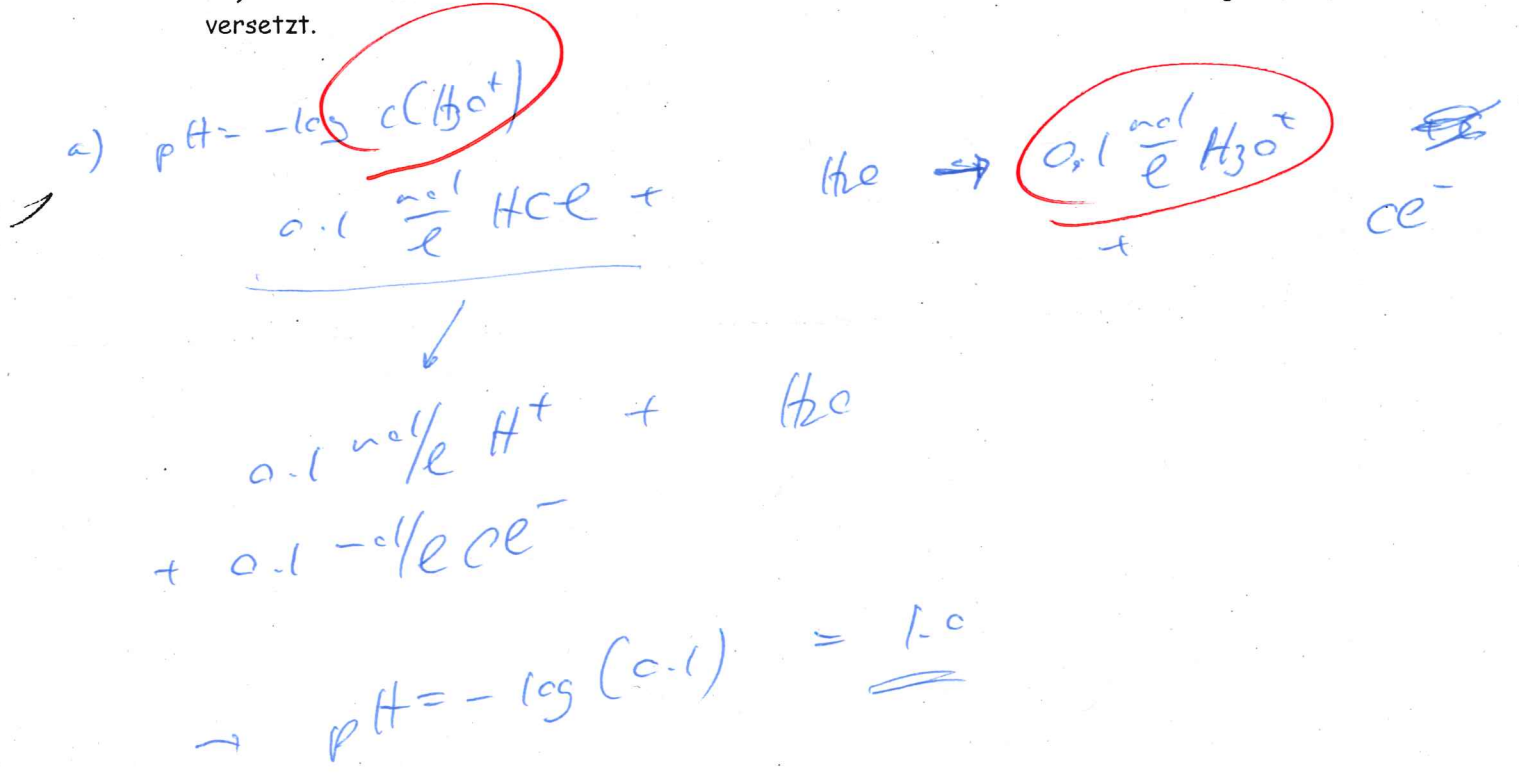 versetzt.
a) pH = -log c(H3O+)
0.1 mol/l HCl + H2O → 0,1 mol/l H3O+ + Cl-
0.1 mol/l H+ + H2O
+ 0.1 mol/l Cl-
→ pH = - log (0.1) = 1.0